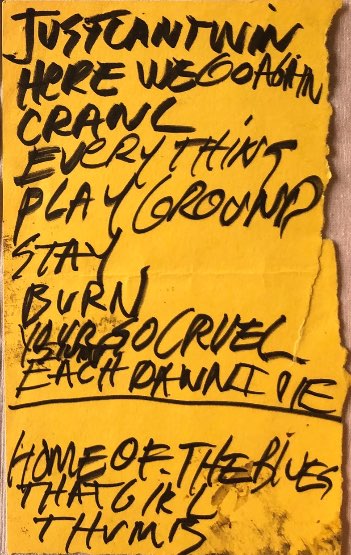 JUST CANT WIN
HERE WE GO AGAIN
CRAWL
EVERYTHING
PLAYGROUND
STAY
BURN
YOUR SO CRUEL
EACH DAWN I DIE
HOME OF THE BLUES
THAT GIRL
THUMBS